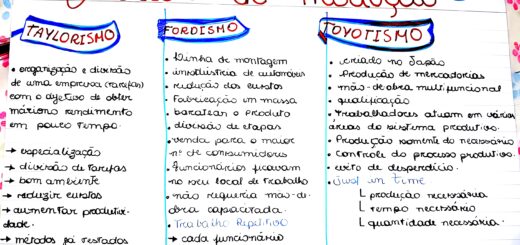 de Produção
TAYLORISMO
• organização e divisão
de uma empresa (tarefas)
com o objetivo de obter
máximo rendimento
em pouco tempo.
→ especialização
→ divisão de tarefas
→ bom ambiente
→ reduzir custos
→ aumentar produtivi-
dade.
→ métodos já testados
FORDISMO
• linha de montagem
• indústria de automóveis
• redução dos custos
• Fabricação em massa
• baratear o produto
• divisão de etapas
• venda para o maior
nº de consumidores
• funcionários ficavam
no seu local de trabalho
• não requeria mão-de-
obra capacitada.
• Trabalho Repetitivo
→ cada funcionário
TOYOTISMO
• criado no Japão
• Produção de mercadorias
• mão-de-obra multifuncional
• qualificação
• Trabalhadores atuam em várias
áreas do sistema produtivo.
• Produção somente do necessário
• controle do processo produtivo.
• evito de desperdício.
• just in time
└ produção necessária
└ tempo necessário
└ quantidade necessária.